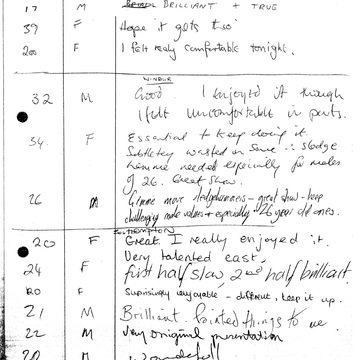 17 M BRILLIANT + TRUE
39 F Hope it gets two
200 F I felt really comfortable tonight.
WINDSOR
32 M Good. I enjoyed it though
I felt uncomfortable in parts.
34 F Essential to keep doing it.
Subtlety wasted in some ∴ sledge
hammer needed especially for males
of 26. Great Show.
26 M Gimme more sledgehammers - great show - keep
challenging male values + especially 26 year old ones.
20 F Great. I really enjoyed it.
Very talented cast,
24 F first half slow, 2nd half brilliant.
20 F Surprisingly enjoyable - different, keep it up.
21 M Brilliant. Pointed things to me
22 M Very original presentation
20 M Wonderful